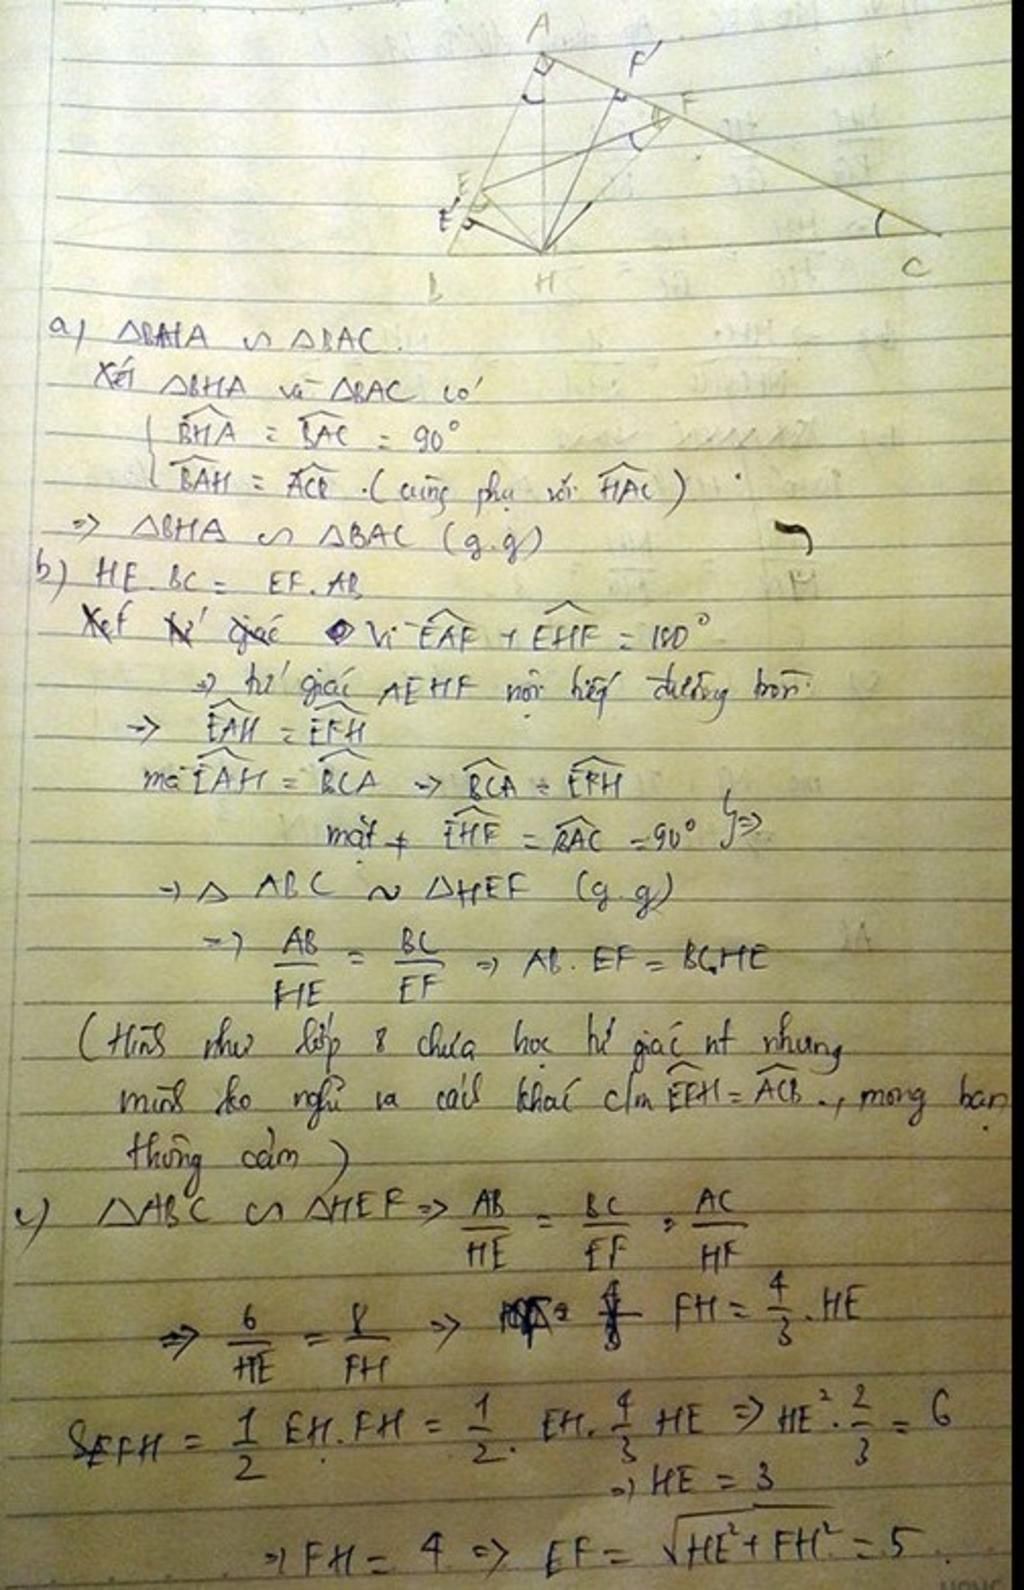 A
F'
F
E
E'
B
H
C
a) ΔBHA ∽ ΔBAC.
Xét ΔBHA và ΔBAC có
{ \widehat{BHA} = \widehat{BAC} = 90°
\widehat{BAH} = \widehat{ACB} . (cùng phụ với \widehat{HAC})
=> ΔBHA ∽ ΔBAC (g.g)
b) HE.BC = EF.AB
Vì \widehat{EAF} + \widehat{EHF} = 180°
=> tứ giác AEHF nội tiếp đường tròn.
=> \widehat{EAH} = \widehat{EFH}
mà \widehat{EAH} = \widehat{BCA} => \widehat{BCA} = \widehat{EFH}
mặt ≠ \widehat{EHF} = \widehat{BAC} = 90° } =>
=> Δ ABC ~ ΔHEF (g.g)
=> AB/HE = BC/EF => AB.EF = BC.HE
(Hình như lớp 8 chưa học tứ giác nt nhưng
mình ko nghĩ ra cách khác c/m \widehat{EFH} = \widehat{ACB}., mong bạn
thông cảm)
c) ΔABC ∽ ΔHEF => AB/HE = BC/EF = AC/HF
=> 6/HE = 8/FH => FH = 4/3 . HE
S_{EFH} = 1/2 EH.FH = 1/2. EH. 4/3 HE => HE². 2/3 = 6
=> HE = 3
=> FH = 4 => EF = √(HE² + FH²) = 5.